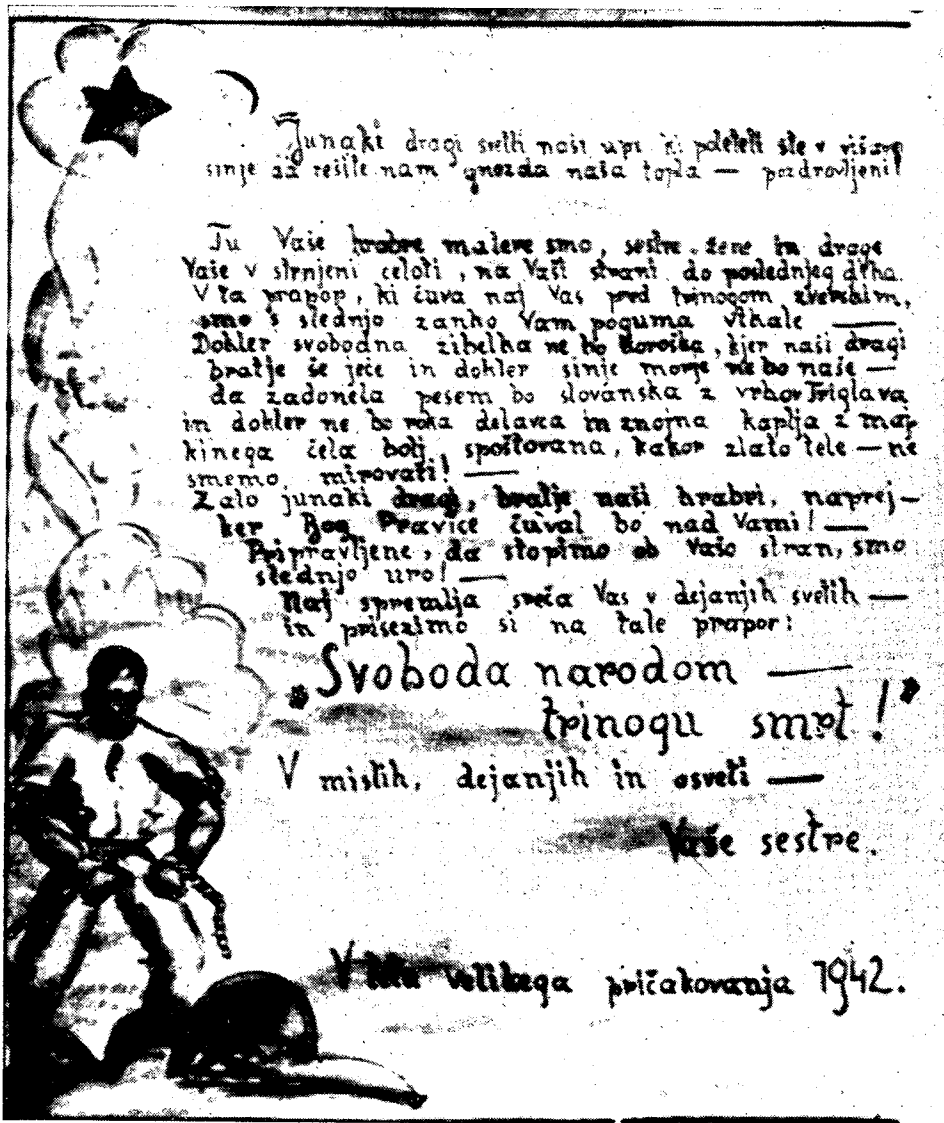 Junaki dragi svetli naši upi ki poleteli ste v višave
sinje da rešite nam gnezda naša topla — pozdravljeni!
Tu Vaše hrabre matere smo, sestre, žene in drage
Vaše v strnjeni celoti, na Vaši strani do poslednjeg diha.
V ta prapor, ki čuva naj Vas pred trinogom zverskim,
smo s slednjo zanko Vam poguma vtkale —
Dokler svobodna zibelka ne bo Koroška, kjer naši dragi
bratje še ječe in dokler sinje morje ne bo naše —
da zadonela pesem bo slovanska z vrhov Triglava
in dokler ne bo roka delavca in znojna kaplja z maj
kinega čela bolj spoštovana, kakor zlato tele — ne
smemo mirovati! —
Zato junaki dragi, bratje naši hrabri, naprej —
ker Bog Pravice čuval bo nad Vami! —
Pripravljene, da stopimo ob Vašo stran, smo
slednjo uro! —
Naj spremlja sreča Vas v dejanjih svetih —
in prisezimo si na tale prapor:
"Svoboda narodom —
trinogu smrt!"
V mislih, dejanjih in osveti —
Vaše sestre.
V letu velikega pričakovanja 1942.